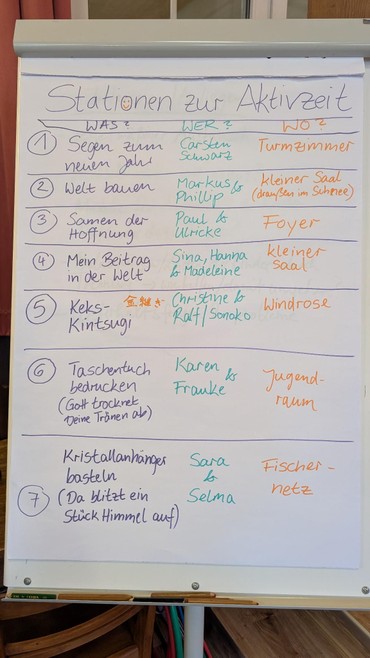 Stationen zur Aktivzeit
WAS? WER? WO?
1 Segen zum Carsten Turmzimmer
neuen Jahr Schwarz
2 Welt bauen Markus & kleiner Saal
Phillip (draußen im Schnee)
3 Samen der Paul & Foyer
Hoffnung Ulricke
4 Mein Beitrag Sina, Hanna kleiner
in der Welt & Madeleine saal
5 Keks- Christine & Windrose
Kintsugi Ralf/Sonoko
6 Taschentuch Karen Jugend-
bedrucken & raum
(Gott trocknet Frauke
Deine Tränen ab)
Kristallanhänger Sara Fischer-
basteln & netz
7 (Da blitzt ein Selma
Stück Himmel auf)